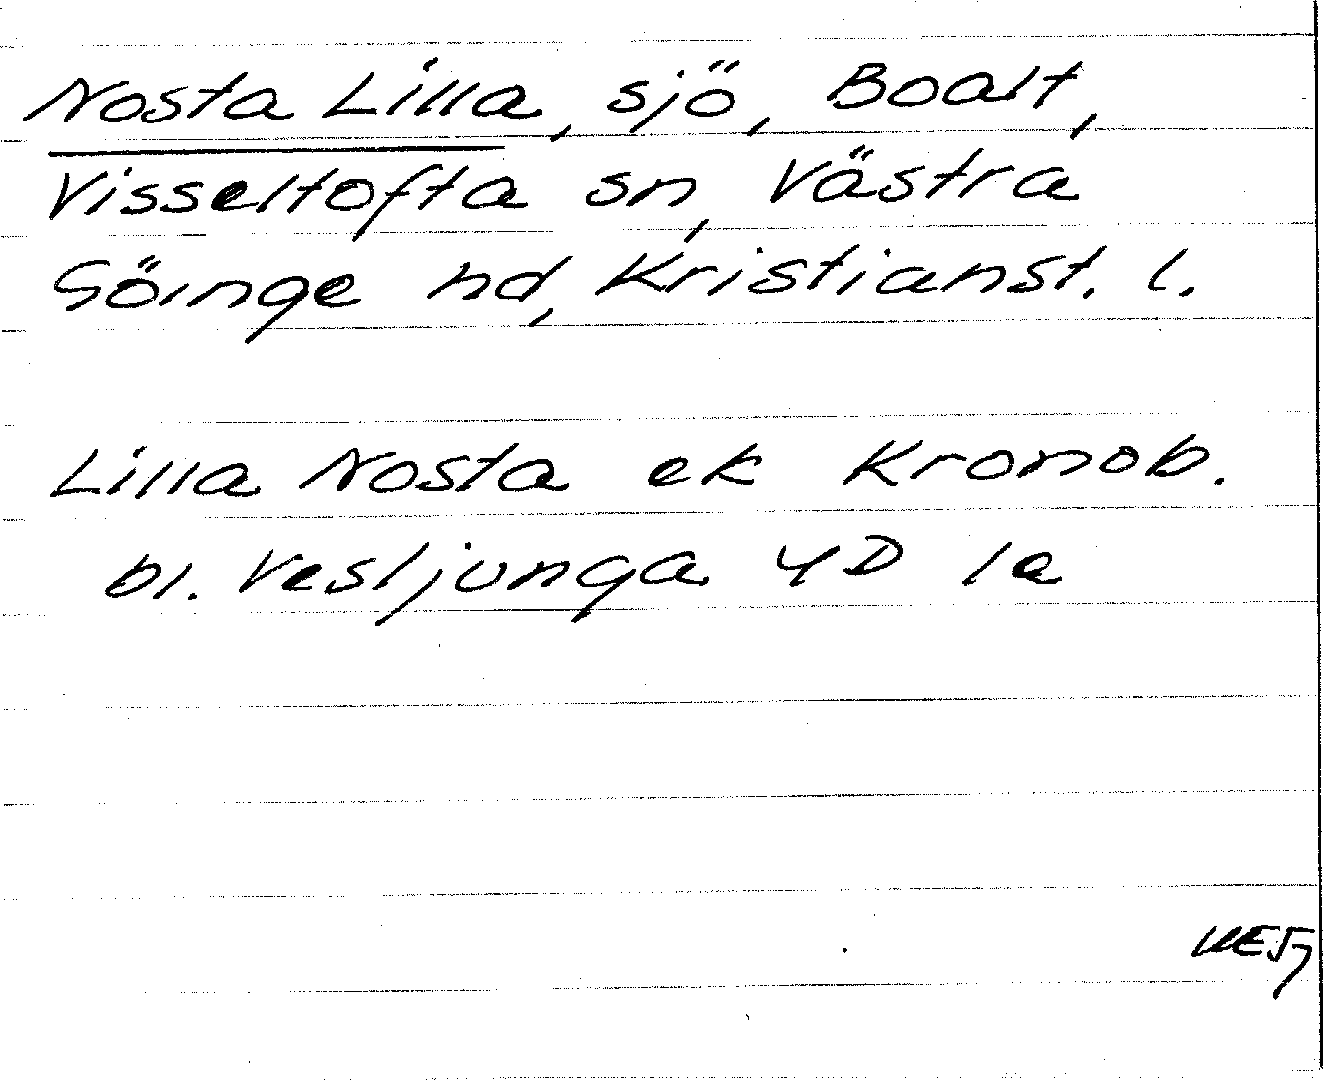 Nosta Lilla, sjö, Boalt,
Visseltofta sn, Västra
Göinge hd, Kristianst. l.
Lilla Nosta ek Kronob.
bl. Vesljunga 4D 1e